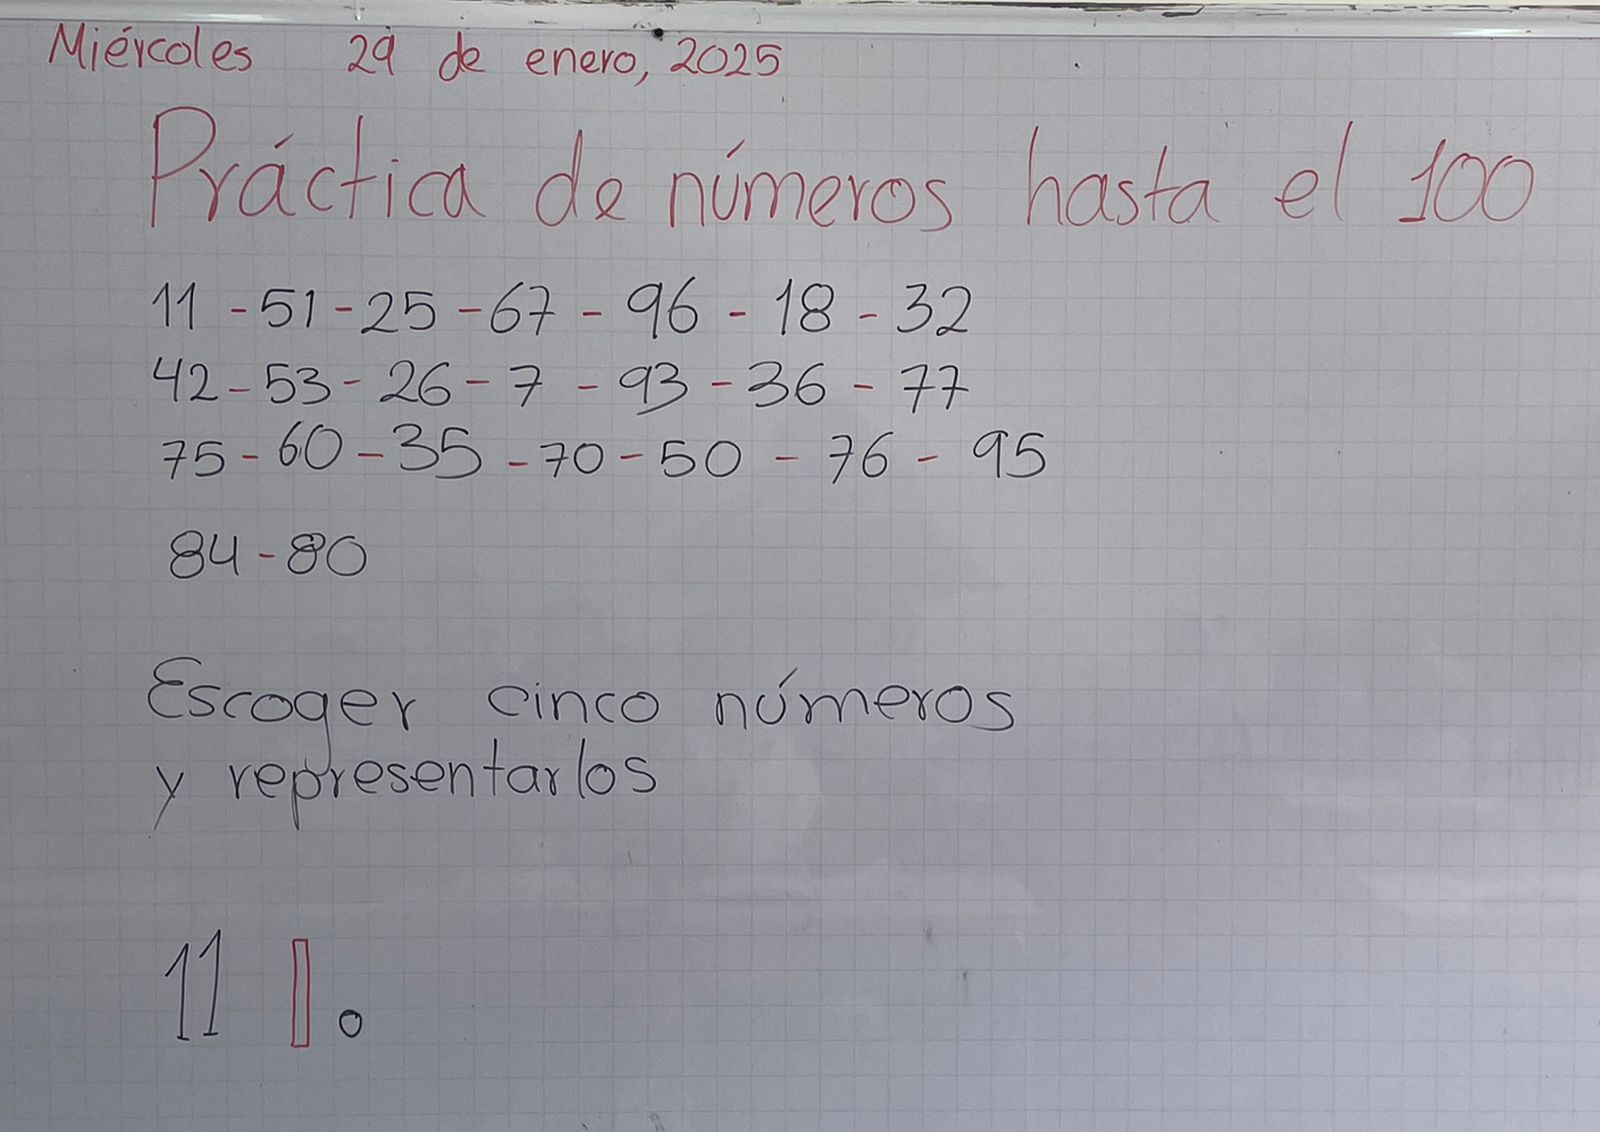 Miércoles 29 de enero, 2025
Práctica de números hasta el 100
11 - 51 - 25 - 67 - 96 - 18 - 32
42 - 53 - 26 - 7 - 93 - 36 - 77
75 - 60 - 35 - 70 - 50 - 76 - 95
84 - 80
Escoger cinco números
y representarlos
11